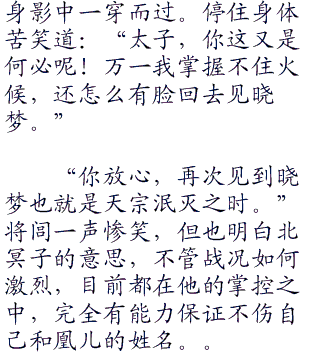 身影中一穿而过。停住身体
苦笑道：“太子，你这又是
何必呢！万一我掌握不住火
候，还怎么有脸回去见晓
梦。”
“你放心，再次见到晓
梦也就是天宗泯灭之时。”
将闾一声惨笑，但也明白北
冥子的意思，不管战况如何
激烈，目前都在他的掌控之
中，完全有能力保证不伤自
己和凰儿的姓名。。